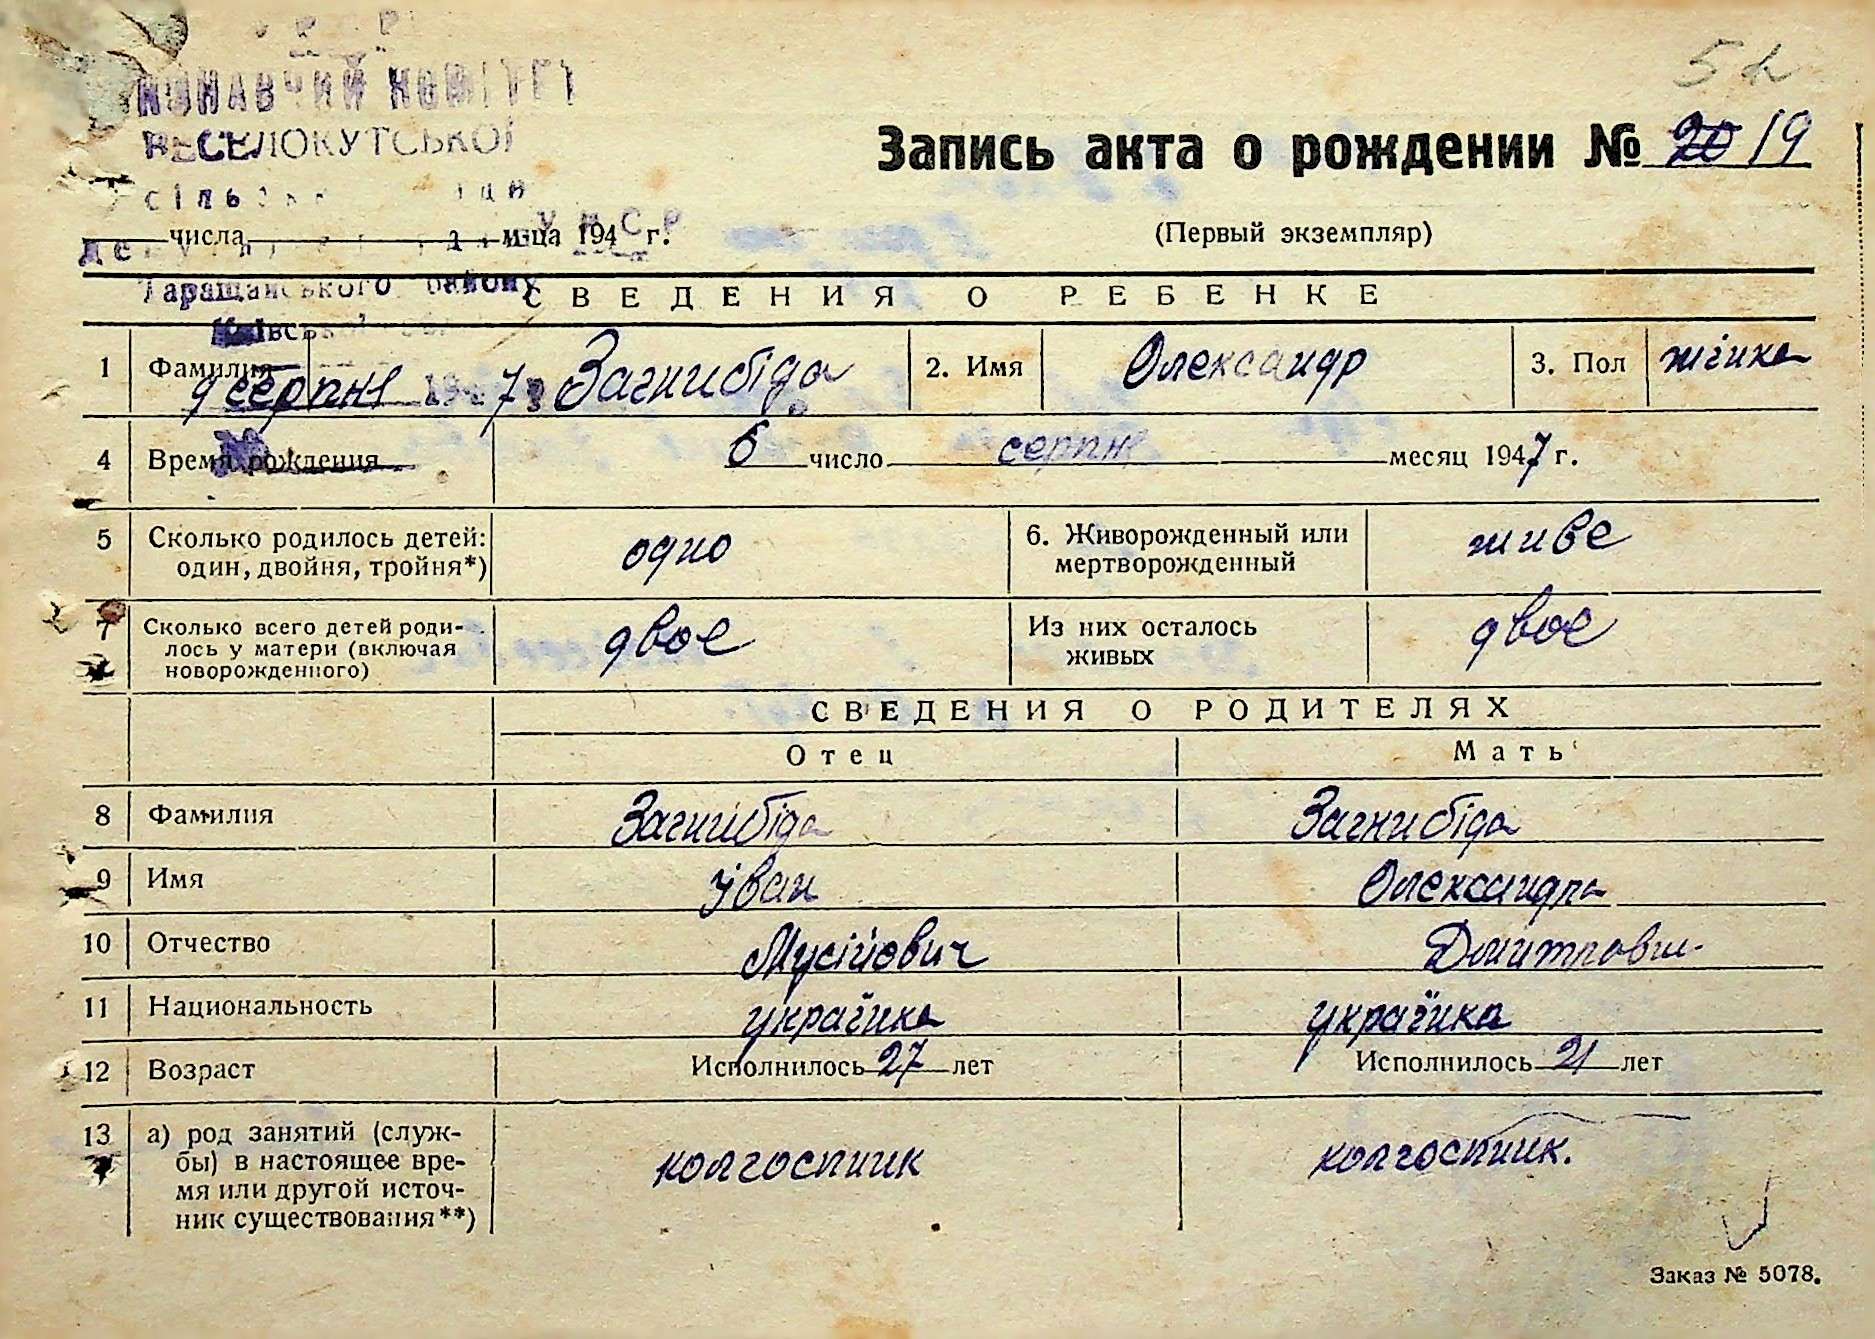 КОНАВЧИЙ КОМІТЕТ
ВЕСЕЛОКУТСЬКОЇ
Таращанського району
9 серпня 1947
Запись акта о рождении № 20 19
числа м-ца 194 г.
(Первый экземпляр)
СВЕДЕНИЯ О РЕБЕНКЕ
1 Фамилия Загнибіда 2. Имя Олександр 3. Пол
4 Время рождения 6 число серпня месяц 1947 г.
5 Сколько родилось детей: один, двойня, тройня*) одно 6. Живорожденный или мертворожденный живе
7 Сколько всего детей родилось у матери (включая новорожденного) двое Из них осталось живых двое
СВЕДЕНИЯ О РОДИТЕЛЯХ
Отец Мать
8 Фамилия Загнибіда Загнибіда
9 Имя Іван Олександра
10 Отчество Мусійович Дмитровн
11 Национальность українка українка
12 Возраст Исполнилось 27 лет Исполнилось 21 лет
13 а) род занятий (служ-
бы) в настоящее вре-
мя или другой источ-
ник существования**) колгоспник колгоспник.
Заказ № 5078.